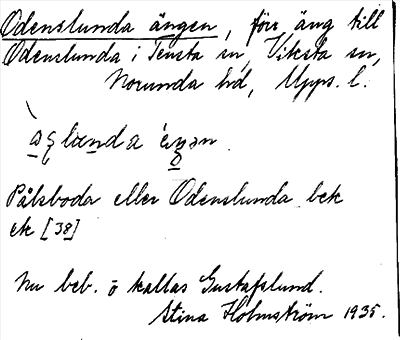 Odenslunda ängen, förr äng till
Odenslunda i Tensta sn, Viksta sn,
Norunda hd, Upps. l.
Pålsboda eller Odenslunda bek
ek [38]
Nu beb. o kallas Gustafslund.
Stina Holmström 1935.